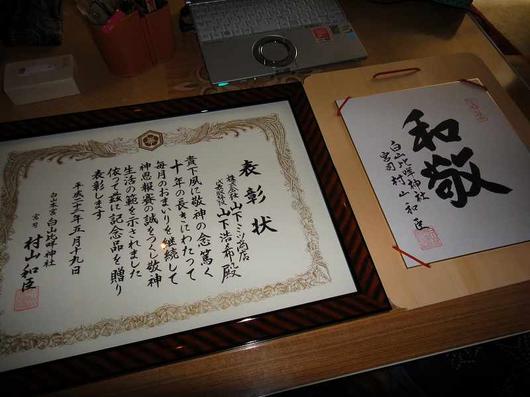 表彰状
株式会社山下ミツ商店
代表取締役山下浩希殿
貴下夙に敬神の念篤く
十年の長きにわたって
毎月のおまいりを継続して
神恩報賽の誠をつくし敬神
生活の範を示されました
依って茲に記念品を贈り
表彰します
平成二十一年五月十九日
白山本宮 白山比咩神社
宮司 村山和臣
和敬
白山比咩神社
宮司 村山和臣